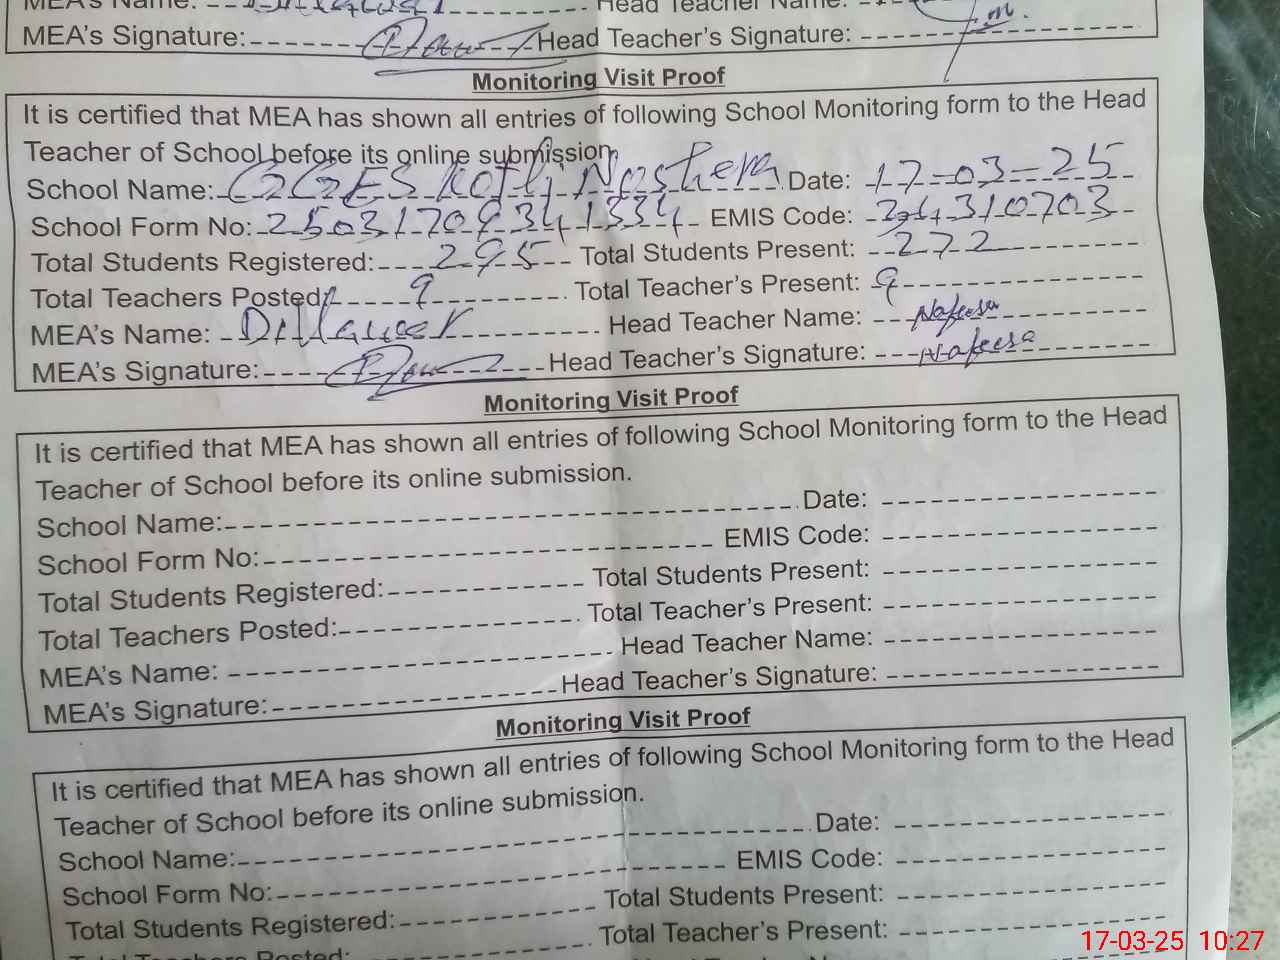 MEA's Name: Head Teacher Name:
MEA's Signature: Head Teacher's Signature:
Monitoring Visit Proof
It is certified that MEA has shown all entries of following School Monitoring form to the Head
Teacher of School before its online submission.
School Name: GGES Kotli Noshera Date: 17-03-25
School Form No: EMIS Code: 34310703
Total Students Registered: 295 Total Students Present: 272
Total Teachers Posted: 9 Total Teacher's Present: 9
MEA's Name: Dilawer Head Teacher Name: Nafeesa
MEA's Signature: Head Teacher's Signature: Nafeesa
Monitoring Visit Proof
It is certified that MEA has shown all entries of following School Monitoring form to the Head
Teacher of School before its online submission.
School Name: Date:
School Form No: EMIS Code:
Total Students Registered: Total Students Present:
Total Teachers Posted: Total Teacher's Present:
MEA's Name: Head Teacher Name:
MEA's Signature: Head Teacher's Signature:
Monitoring Visit Proof
It is certified that MEA has shown all entries of following School Monitoring form to the Head
Teacher of School before its online submission.
School Name: Date:
School Form No: EMIS Code:
Total Students Registered: Total Students Present:
Total Teachers Posted: Total Teacher's Present:
17-03-25 10:27